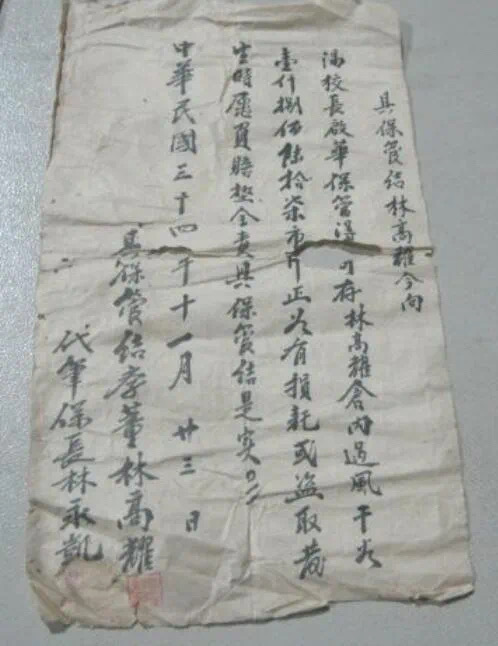 具保管結林高耀今向
校長啟華保管得 存林高耀倉内過風干谷
壹仟捌佰陸拾柒市斤正谷有損耗或盜取發
生時愿負賠墊全責具保管結是实
中華民國三十四年十一月廿三日
具保管結存董林高耀
代筆保長林永凱